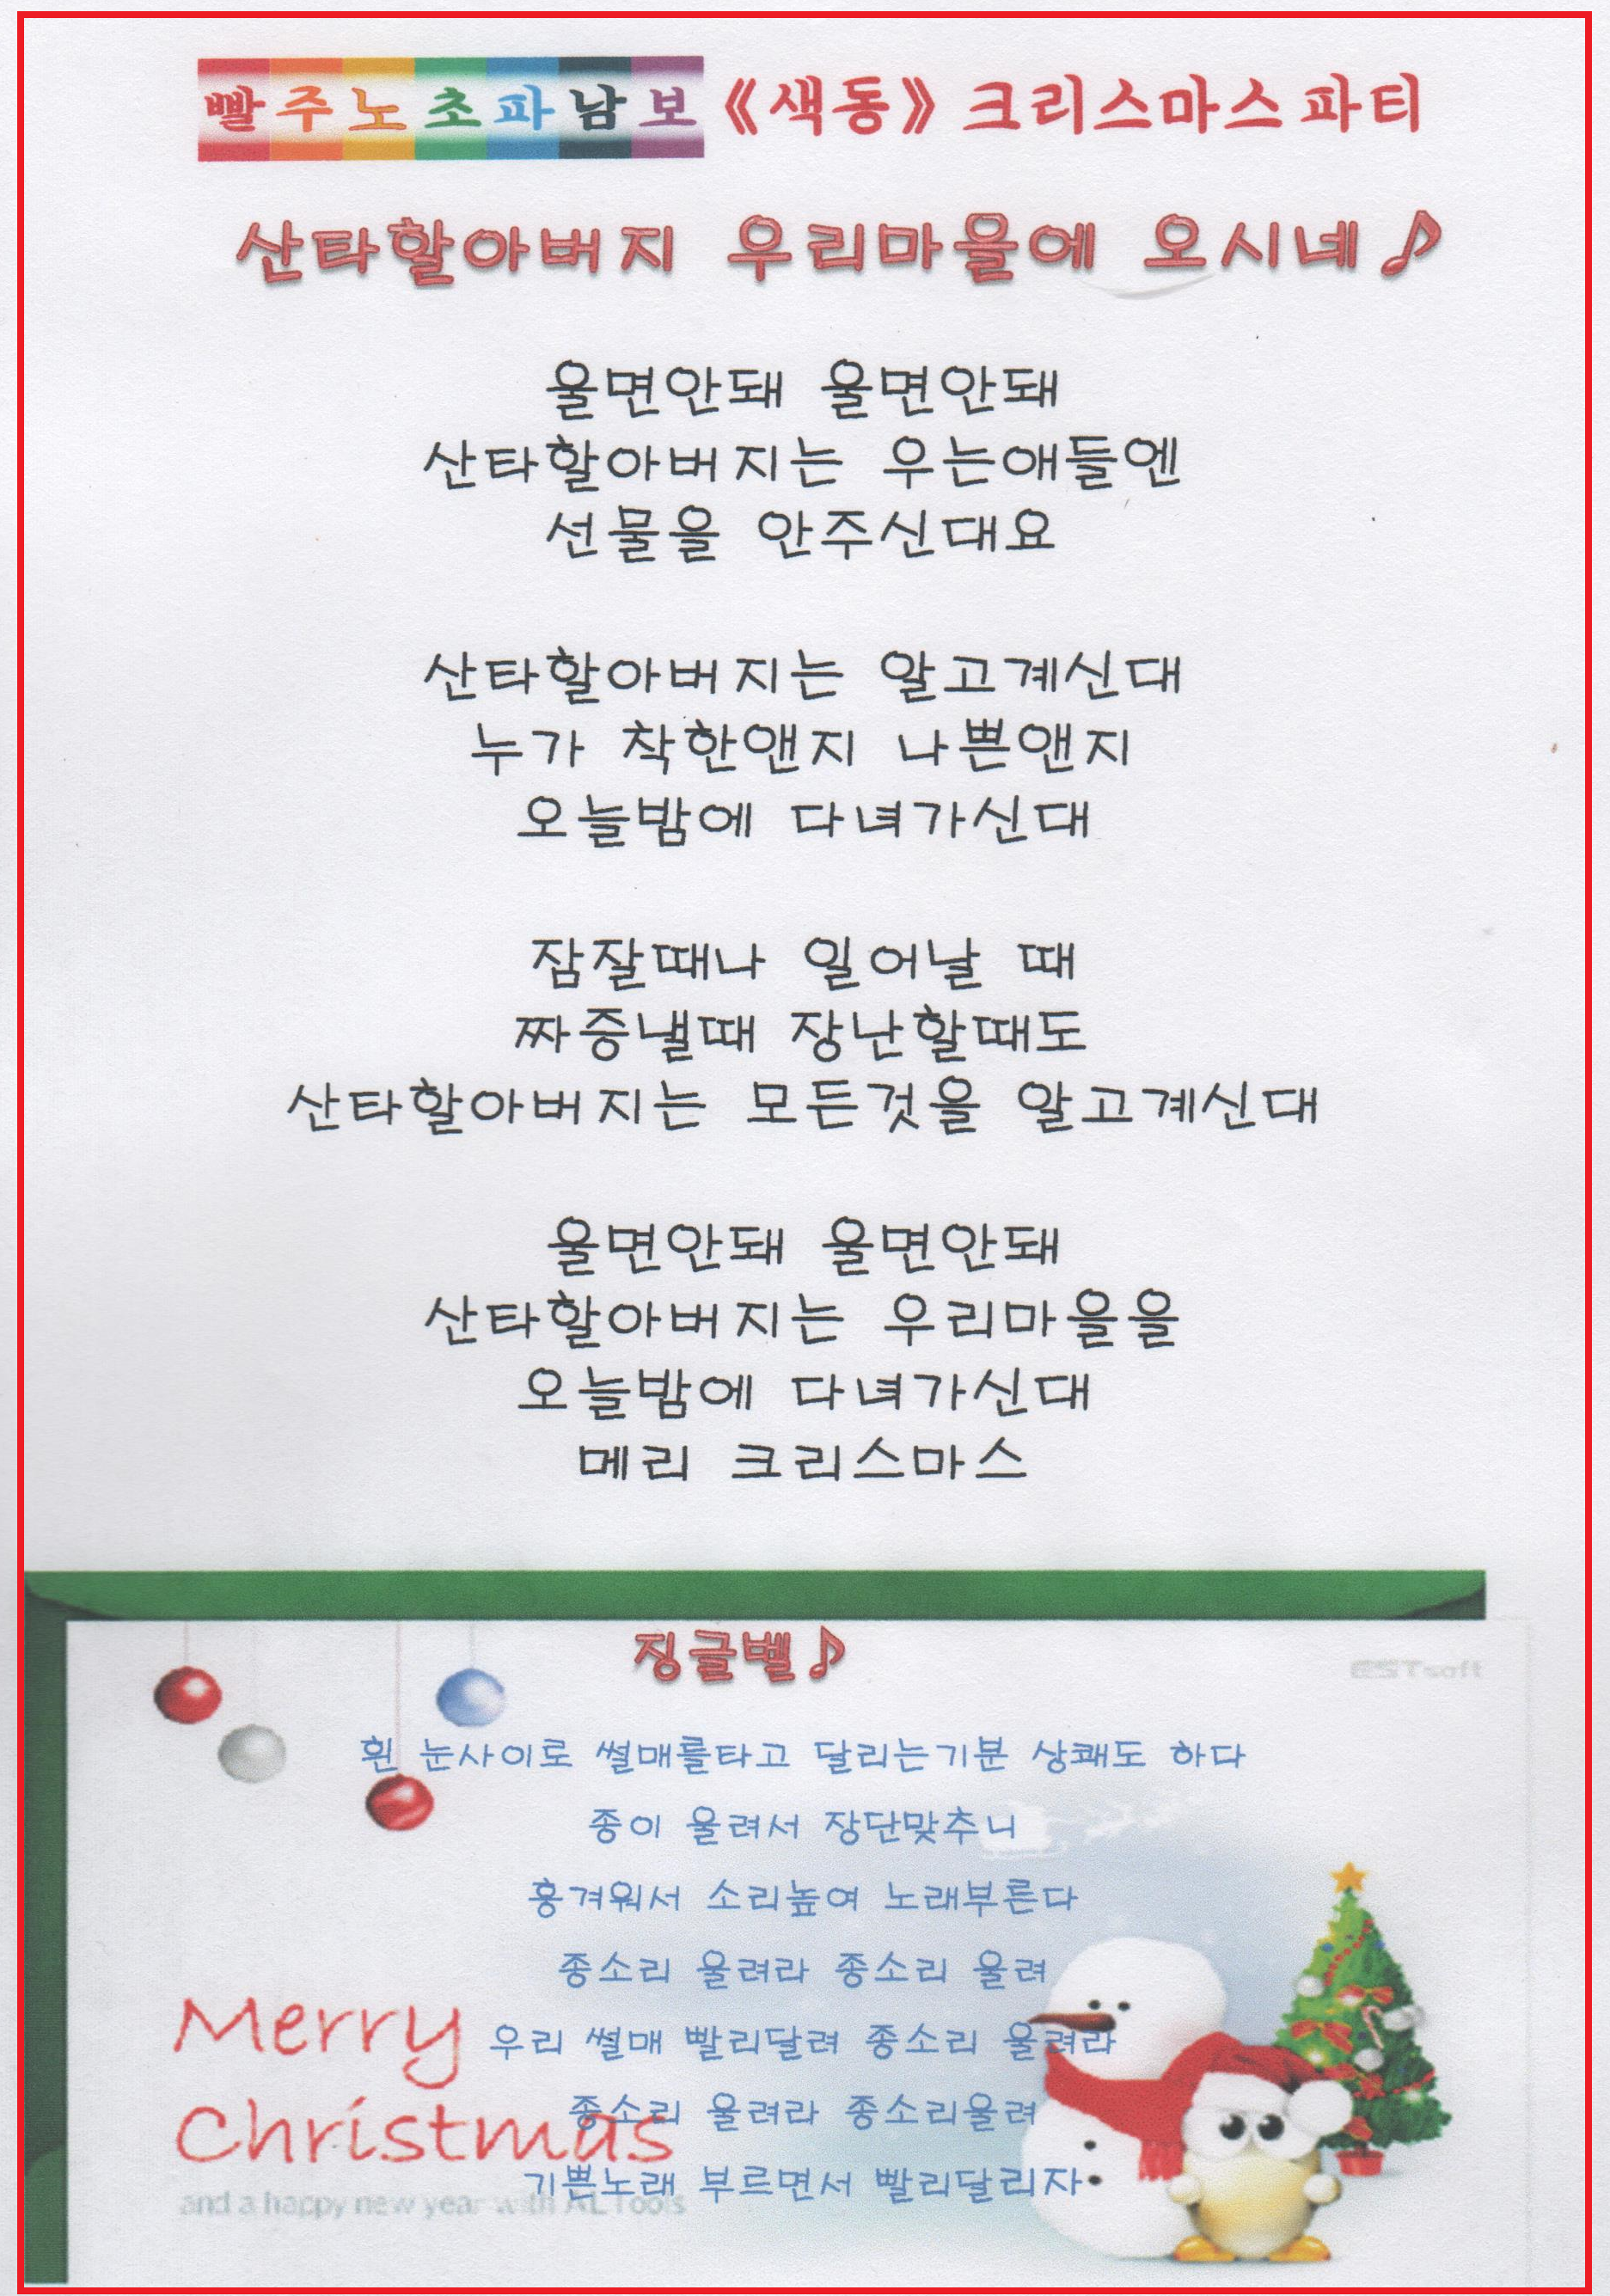 빨주노초파남보 《색동》 크리스마스 파티
산타할아버지 우리마을에 오시네♪
울면안돼 울면안돼
산타할아버지는 우는애들엔
선물을 안주신대요
산타할아버지는 알고계신대
누가 착한앤지 나쁜앤지
오늘밤에 다녀가신대
잠잘때나 일어날 때
짜증낼때 장난할때도
산타할아버지는 모든것을 알고계신대
울면안돼 울면안돼
산타할아버지는 우리마을을
오늘밤에 다녀가신대
메리 크리스마스
징글벨♪
ESTsoft
흰 눈사이로 썰매를타고 달리는기분 상쾌도 하다
종이 울려서 장단맞추니
흥겨워서 소리높여 노래부른다
종소리 울려라 종소리 울려
우리 썰매 빨리달려 종소리 울려라
종소리 울려라 종소리울려
기쁜노래 부르면서 빨리달리자
Merry
Christmas
and a happy new year with ALTools